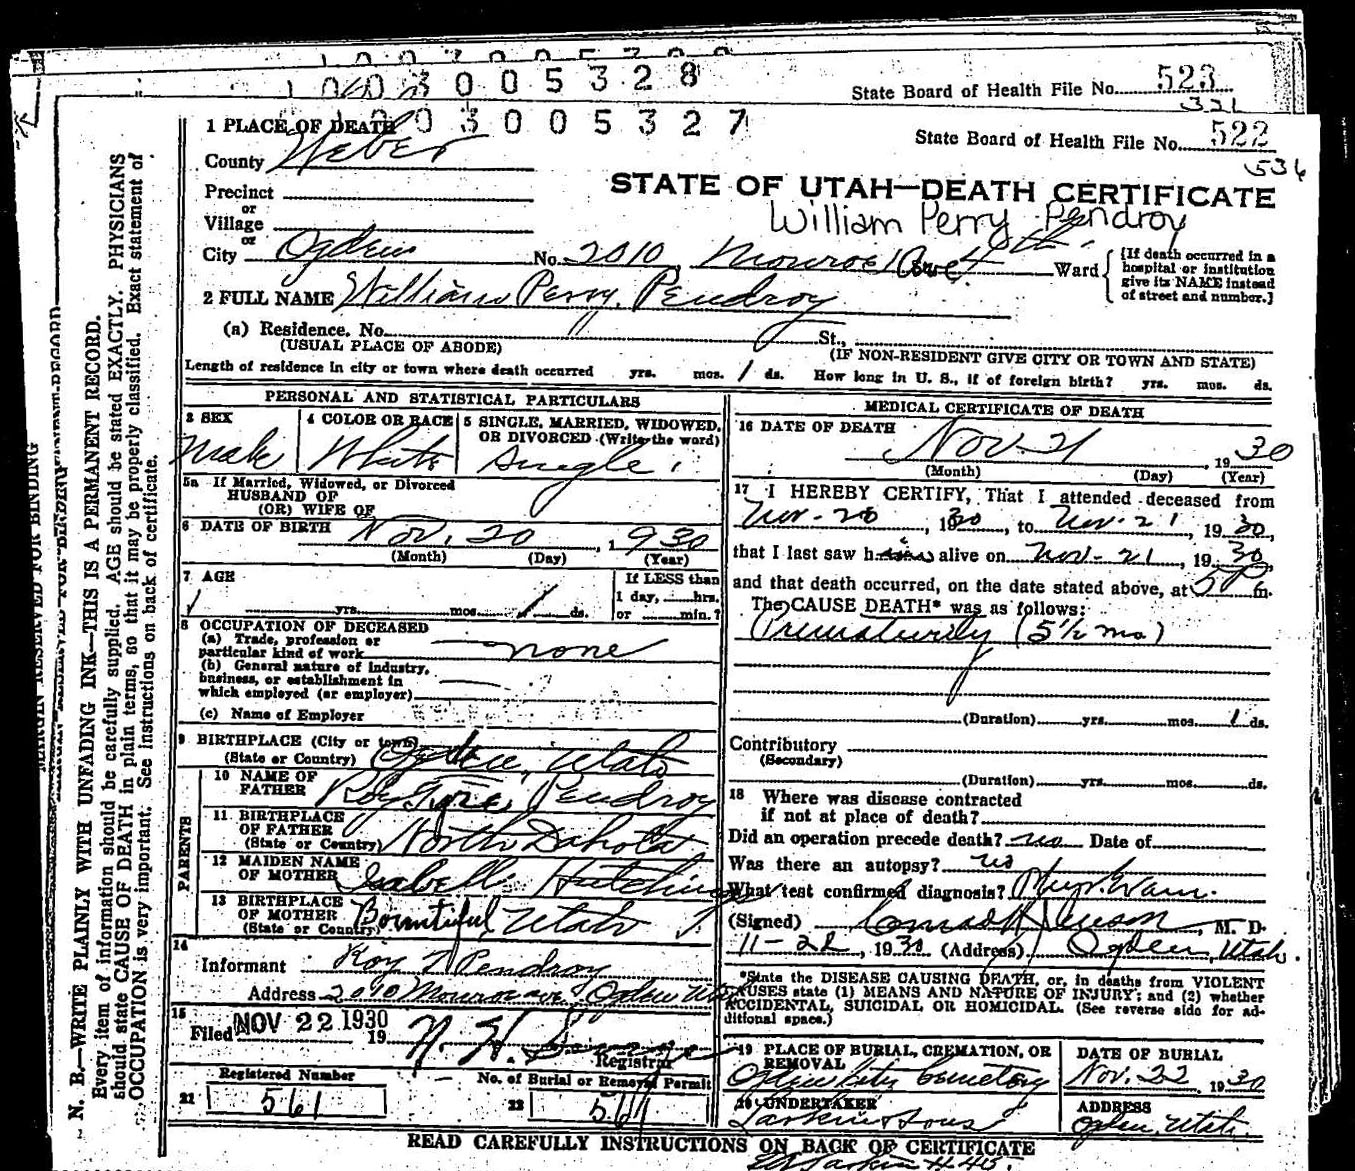 1003005328
State Board of Health File No. 523
321
1003005327
State Board of Health File No. 522
536
1 PLACE OF DEATH
County Weber
STATE OF UTAH—DEATH CERTIFICATE
Precinct
or
William Perry Pendroy
Village
or
City Ogden No. 2010 Monroe Ave. 4th Ward
{If death occurred in a
hospital or institution
give its NAME instead
of street and number.}
2 FULL NAME William Perry Pendroy
(a) Residence. No. St.,
(USUAL PLACE OF ABODE) (IF NON-RESIDENT GIVE CITY OR TOWN AND STATE)
Length of residence in city or town where death occurred yrs. mos. 1 ds. How long in U. S., if of foreign birth? yrs. mos. ds.
PERSONAL AND STATISTICAL PARTICULARS
3 SEX
Male
4 COLOR OR RACE
White
5 SINGLE, MARRIED, WIDOWED,
OR DIVORCED (Write the word)
Single
5a If Married, Widowed, or Divorced
HUSBAND OF
(OR) WIFE OF
6 DATE OF BIRTH Nov. 20, 1930
(Month) (Day) (Year)
7 AGE
yrs. mos. 1 ds.
If LESS than
1 day, hrs.
or min.?
8 OCCUPATION OF DECEASED
(a) Trade, profession or
particular kind of work none
(b) General nature of industry,
business, or establishment in
which employed (or employer)
(c) Name of Employer
9 BIRTHPLACE (City or town)
(State or Country) Ogden, Utah
PARENTS
10 NAME OF
FATHER Roy Tyre Pendroy
11 BIRTHPLACE
OF FATHER
(State or Country) North Dakota
12 MAIDEN NAME
OF MOTHER Isabell Hutchings
13 BIRTHPLACE
OF MOTHER
(State or Country) Bountiful, Utah
14
Informant Roy T Pendroy
Address 2010 Monroe ave Ogden Utah
15
Filed NOV 22 1930 19
Registrar
Registered Number No. of Burial or Removal Permit
21 561 22 561
MEDICAL CERTIFICATE OF DEATH
16 DATE OF DEATH Nov 21, 1930
(Month) (Day) (Year)
17 I HEREBY CERTIFY, That I attended deceased from
Nov-20, 1930, to Nov-21 1930,
that I last saw him alive on Nov-21, 1930,
and that death occurred, on the date stated above, at 5 P m.
The CAUSE DEATH* was as follows:
Prematurity (5½ mo)
(Duration) yrs. mos. 1 ds.
Contributory
(Secondary)
(Duration) yrs. mos. ds.
18 Where was disease contracted
if not at place of death?
Did an operation precede death? no Date of
Was there an autopsy? no
What test confirmed diagnosis? Phys. Exam.
(Signed) Conrad H Jenson, M. D.
11-22, 1930 (Address) Ogden, Utah.
*State the DISEASE CAUSING DEATH, or, in deaths from VIOLENT
CAUSES state (1) MEANS AND NATURE OF INJURY; and (2) whether
ACCIDENTAL, SUICIDAL OR HOMICIDAL. (See reverse side for ad-
ditional space.)
19 PLACE OF BURIAL, CREMATION, OR
REMOVAL
Ogden City Cemetery
DATE OF BURIAL
Nov. 22 1930
20 UNDERTAKER
Larkin & Sons
ADDRESS
Ogden, Utah.
READ CAREFULLY INSTRUCTIONS ON BACK OF CERTIFICATE
MARGIN RESERVED FOR BINDING
N. B.—WRITE PLAINLY WITH UNFADING INK—THIS IS A PERMANENT RECORD.
Every item of information should be carefully supplied. AGE should be stated EXACTLY. PHYSICIANS
should state CAUSE OF DEATH in plain terms, so that it may be properly classified. Exact statement of
OCCUPATION is very important. See instructions on back of certificate.